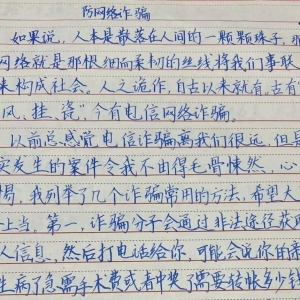 防网络诈骗
如果说，人本是散落在人间的一颗颗珠子，那
网络就是那根细而柔韧的丝线将我们串联
来构成社会。人之诡作，自古以来就有，古有
风、挂、瓷”今有电信网络诈骗。
以前总感觉电信诈骗离我们很远，但其
实发生的案件令我不由得毛骨悚然，心
易，我列举了几个诈骗常用的方法，希望大
上当。第一，诈骗分子会通过非法途径获取
人信息，然后打电话给你，可能会说你的亲
生病了急需手术费或者中奖了需要转帐多少钱